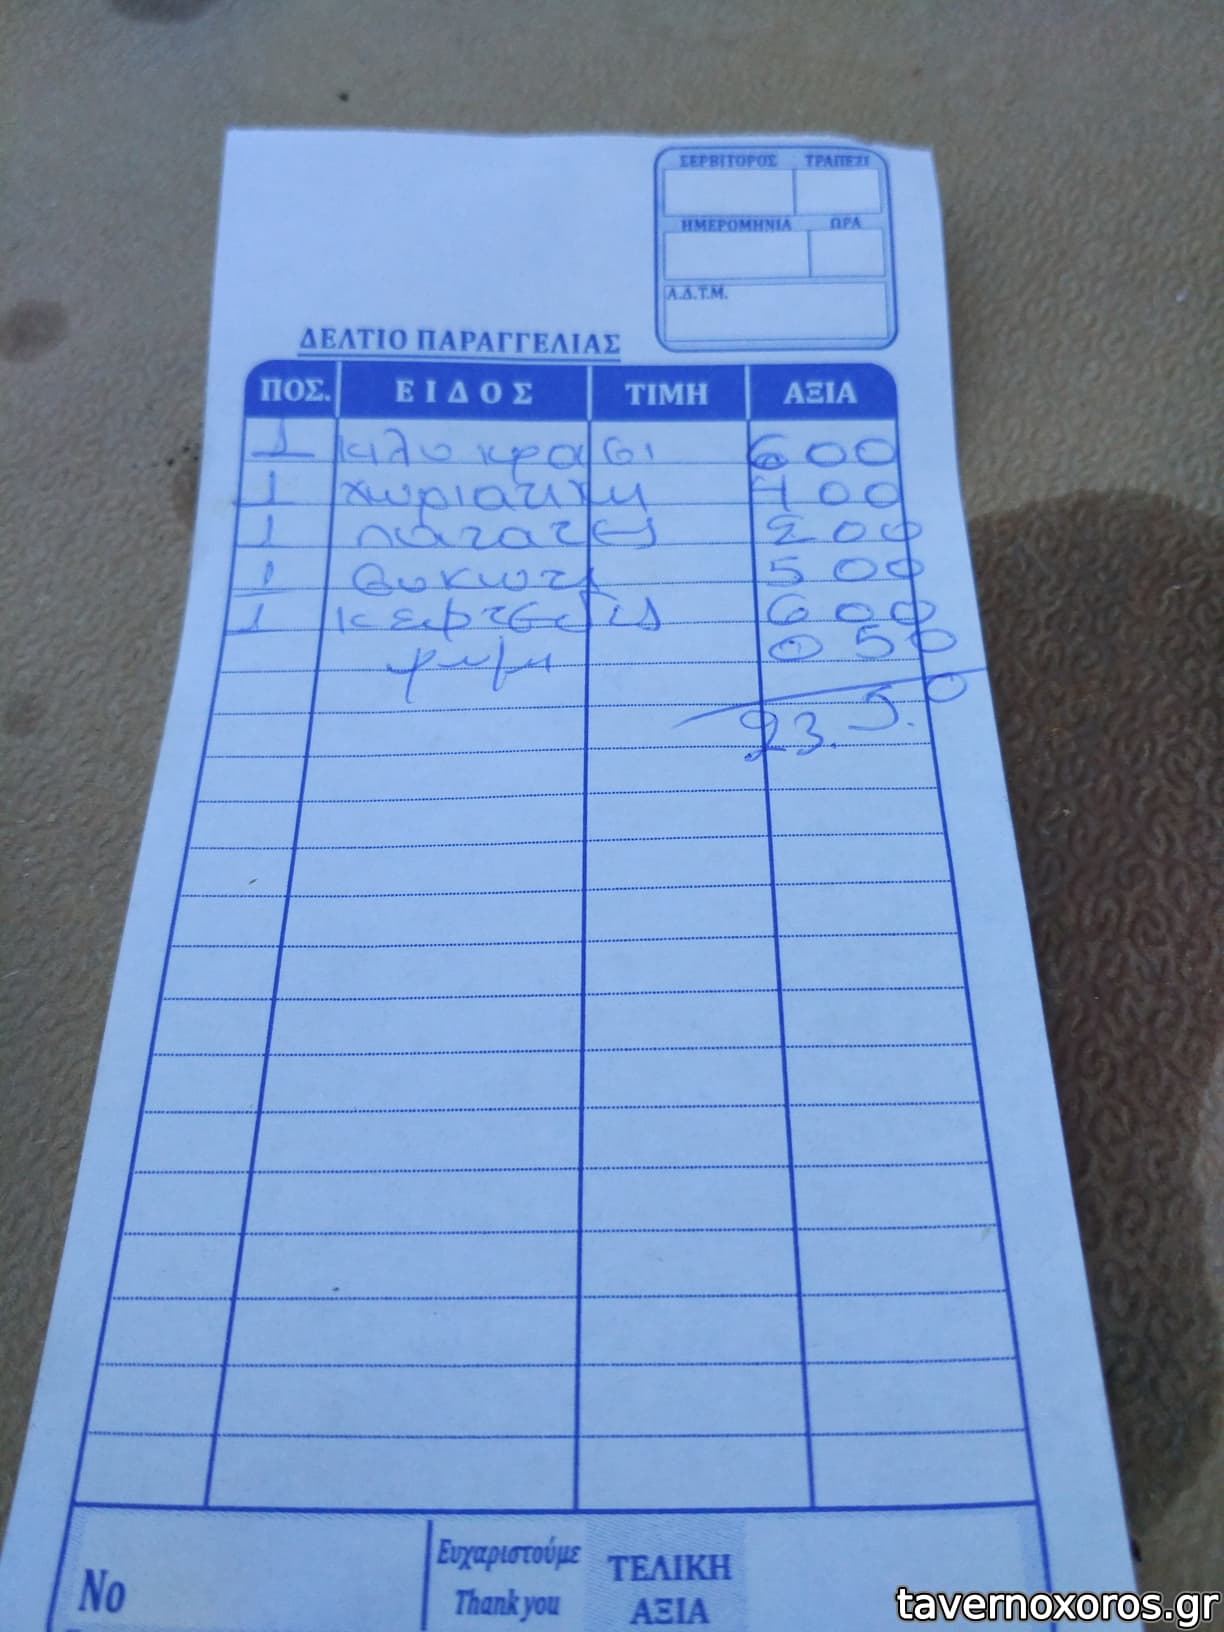 ΣΕΡΒΙΤΟΡΟΣ ΤΡΑΠΕΖΙ
ΗΜΕΡΟΜΗΝΙΑ ΩΡΑ
Α.Δ.Τ.Μ.
ΔΕΛΤΙΟ ΠΑΡΑΓΓΕΛΙΑΣ
ΠΟΣ. ΕΙΔΟΣ ΤΙΜΗ ΑΞΙΑ
1 κιλο κρασι 600
1 χωριατικη 400
1 πατατες 200
1 συκωτι 500
1 κεφτεδες 600
ψωμι 050
23.50
Νο
Ευχαριστούμε
Thank you
ΤΕΛΙΚΗ
ΑΞΙΑ
tavernoxoros.gr